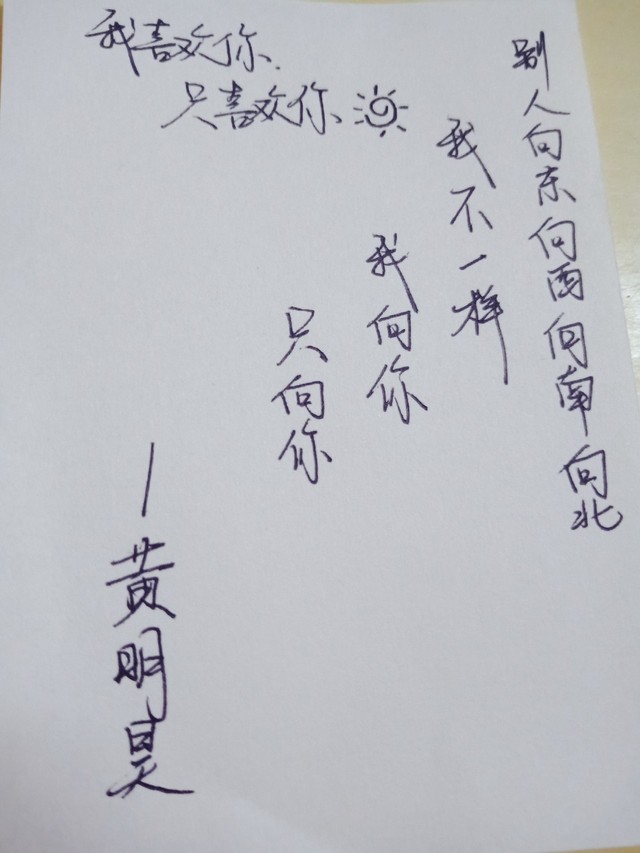 我喜欢你.
只喜欢你
别人向东向西向南向北
我不一样
我向你
只向你
—黄明昊